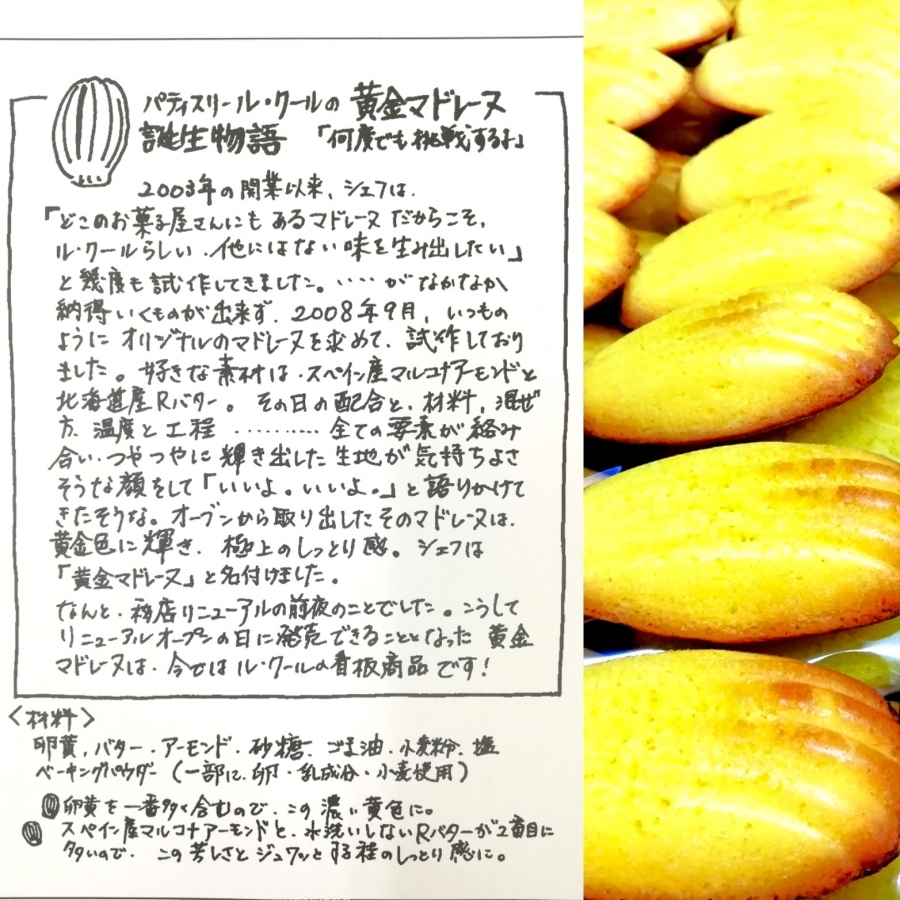 パティスリール・クールの 黄金マドレーヌ
誕生物語 「何度でも挑戦するよ」
2003年の開業以来、シェフは、
「どこのお菓子屋さんにもあるマドレーヌだからこそ、
ル・クールらしい、他にはない味を生み出したい」
と幾度も試作してきました。‥‥がなかなか
納得いくものが出来ず、2008年9月、いつもの
ようにオリジナルのマドレーヌを求めて、試作しており
ました。好きな素材は、スペイン産マルコナアーモンドと
北海道産Rバター。その日の配合と、材料、混ぜ
方、温度と工程 ‥‥‥‥‥ 全ての要素が絡み
合い、つやつやに輝き出した生地が気持ちよさ
そうな顔をして「いいよ。いいよ。」と語りかけて
きたそうな。オーブンから取り出したそのマドレーヌは、
黄金色に輝き、極上のしっとり感。シェフは
「黄金マドレーヌ」と名付けました。
なんと、移店リニューアルの前夜のことでした。こうして
リニューアルオープンの日に発売できることとなった 黄金
マドレーヌは、今ではル・クールの看板商品です!
<材料>
卵黄、バター、アーモンド、砂糖、ごま油、小麦粉、塩
ベーキングパウダー(一部に、卵・乳成分・小麦使用)
卵黄を一番多く含むので、この濃い黄色に。
スペイン産マルコナアーモンドと、水洗いしないRバターが2番目に
多いので、この芳しさとジュワッとする程のしっとり感に。